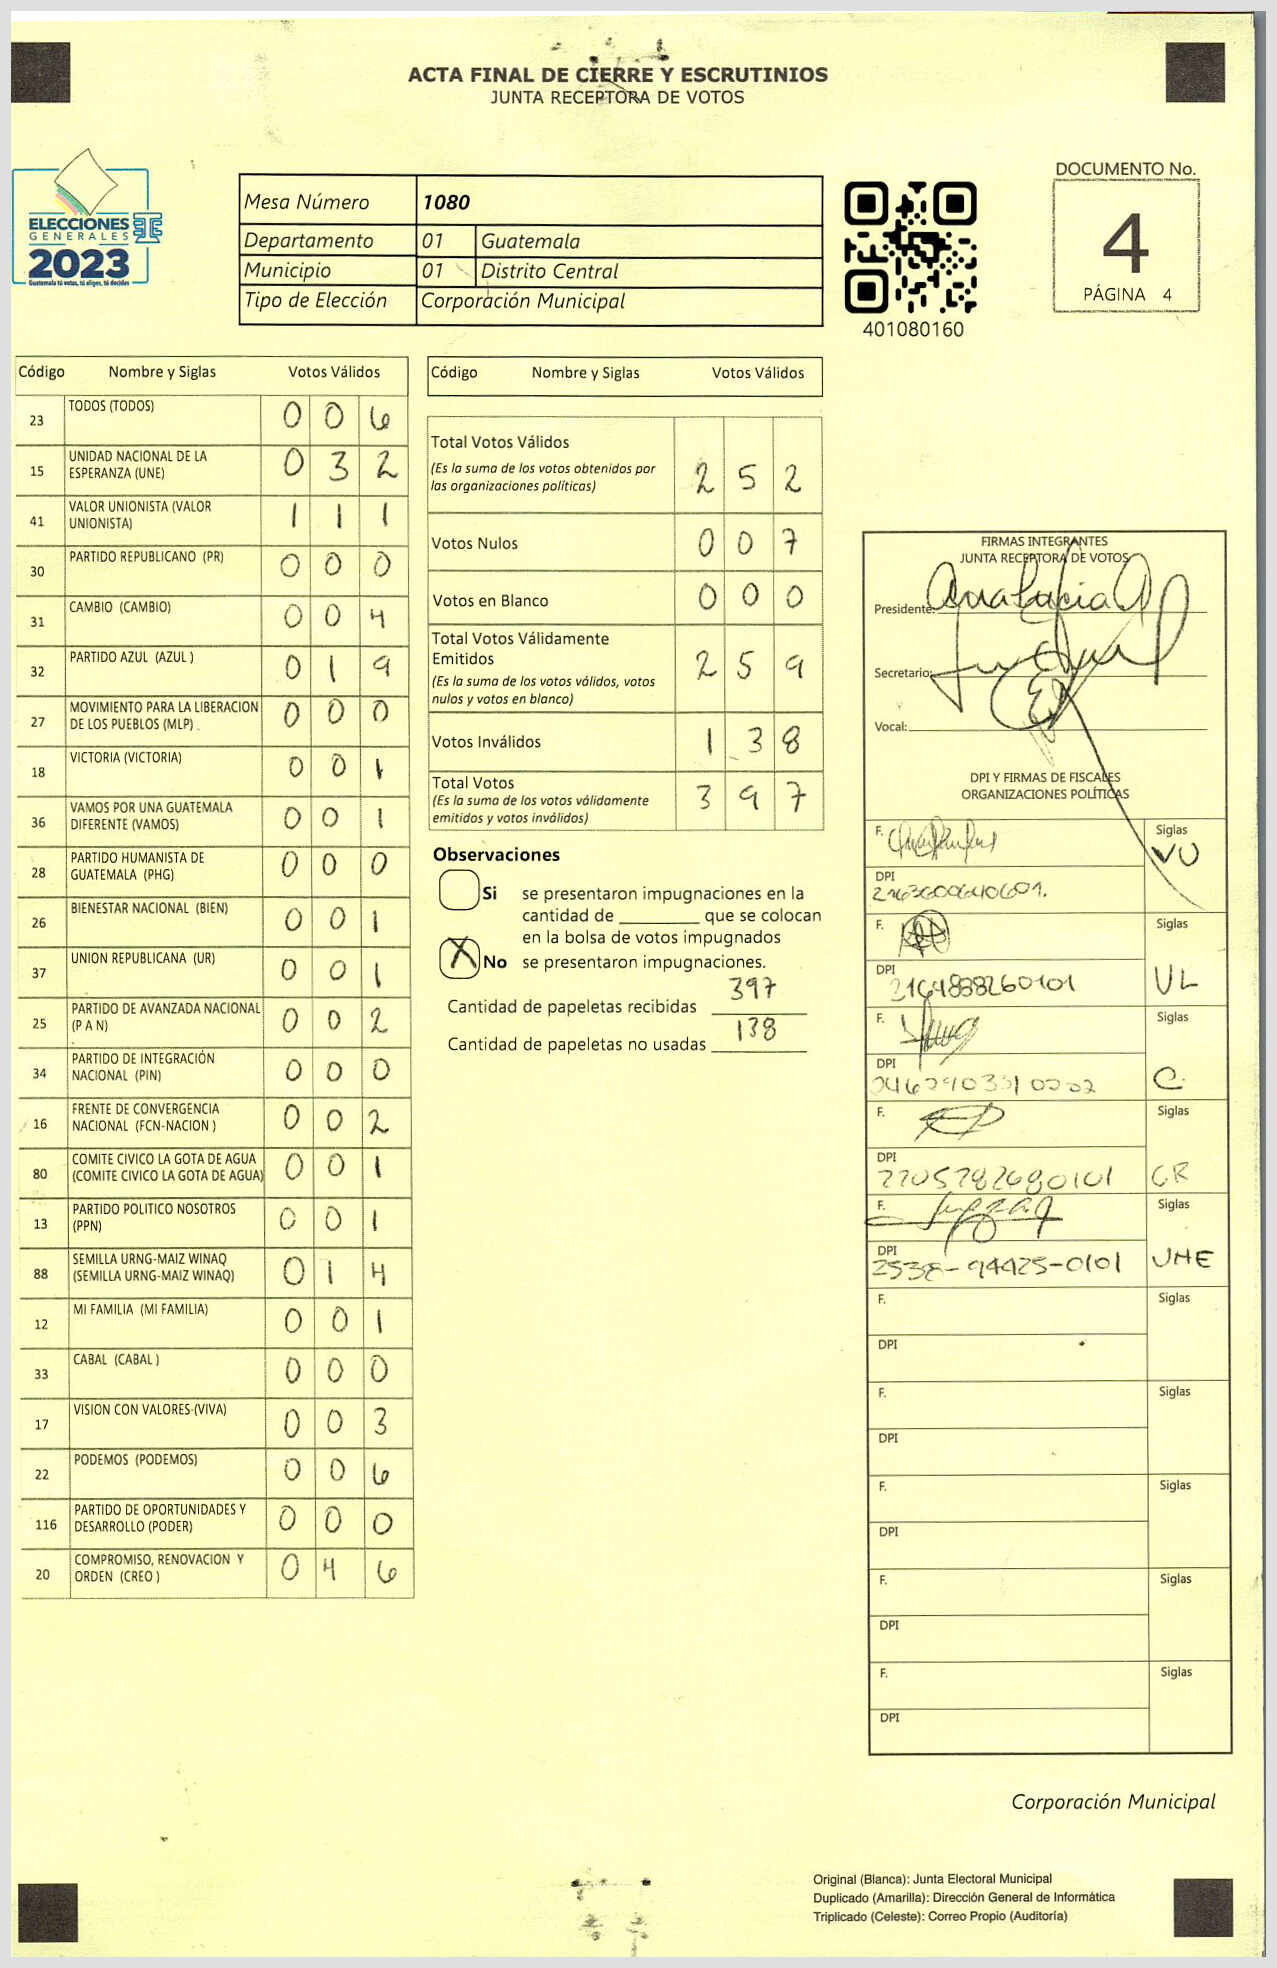 ACTA FINAL DE CIERRE Y ESCRUTINIOS
JUNTA RECEPTORA DE VOTOS
ELECCIONES
GENERALES
2023
Guatemala tú votas, tú eliges, tú decides
Mesa Número 1080
Departamento 01 Guatemala
Municipio 01 Distrito Central
Tipo de Elección Corporación Municipal
401080160
DOCUMENTO No.
4
PÁGINA 4
Código Nombre y Siglas Votos Válidos
23 TODOS (TODOS) 0 0 6
15 UNIDAD NACIONAL DE LA
ESPERANZA (UNE) 0 3 2
41 VALOR UNIONISTA (VALOR
UNIONISTA) 1 1 1
30 PARTIDO REPUBLICANO (PR) 0 0 0
31 CAMBIO (CAMBIO) 0 0 4
32 PARTIDO AZUL (AZUL ) 0 1 9
27 MOVIMIENTO PARA LA LIBERACION
DE LOS PUEBLOS (MLP) 0 0 0
18 VICTORIA (VICTORIA) 0 0 1
36 VAMOS POR UNA GUATEMALA
DIFERENTE (VAMOS) 0 0 1
28 PARTIDO HUMANISTA DE
GUATEMALA (PHG) 0 0 0
26 BIENESTAR NACIONAL (BIEN) 0 0 1
37 UNION REPUBLICANA (UR) 0 0 1
25 PARTIDO DE AVANZADA NACIONAL
(P A N) 0 0 2
34 PARTIDO DE INTEGRACIÓN
NACIONAL (PIN) 0 0 0
16 FRENTE DE CONVERGENCIA
NACIONAL (FCN-NACION ) 0 0 2
80 COMITE CIVICO LA GOTA DE AGUA
(COMITE CIVICO LA GOTA DE AGUA) 0 0 1
13 PARTIDO POLITICO NOSOTROS
(PPN) 0 0 1
88 SEMILLA URNG-MAIZ WINAQ
(SEMILLA URNG-MAIZ WINAQ) 0 1 4
12 MI FAMILIA (MI FAMILIA) 0 0 1
33 CABAL (CABAL ) 0 0 0
17 VISION CON VALORES (VIVA) 0 0 3
22 PODEMOS (PODEMOS) 0 0 6
116 PARTIDO DE OPORTUNIDADES Y
DESARROLLO (PODER) 0 0 0
20 COMPROMISO, RENOVACION Y
ORDEN (CREO ) 0 4 6
Código Nombre y Siglas Votos Válidos
Total Votos Válidos
(Es la suma de los votos obtenidos por
las organizaciones políticas) 2 5 2
Votos Nulos 0 0 7
Votos en Blanco 0 0 0
Total Votos Válidamente
Emitidos 2 5 9
(Es la suma de los votos válidos, votos
nulos y votos en blanco)
Votos Inválidos 1 3 8
Total Votos
(Es la suma de los votos válidamente
emitidos y votos inválidos) 3 9 7
Observaciones
Si se presentaron impugnaciones en la
cantidad de ________ que se colocan
en la bolsa de votos impugnados
X No se presentaron impugnaciones.
Cantidad de papeletas recibidas 397
Cantidad de papeletas no usadas 138
FIRMAS INTEGRANTES
JUNTA RECEPTORA DE VOTOS
Presidente:
Secretario:
Vocal:
DPI Y FIRMAS DE FISCALES
ORGANIZACIONES POLÍTICAS
F. Siglas
VU
DPI
F. Siglas
DPI
2164888260101 UL
F. Siglas
DPI
C.
F. Siglas
DPI
CR
F. Siglas
DPI
2538-94425-0101 UNE
F. Siglas
DPI
F. Siglas
DPI
F. Siglas
DPI
F. Siglas
DPI
F. Siglas
DPI
Corporación Municipal
Original (Blanca): Junta Electoral Municipal
Duplicado (Amarilla): Dirección General de Informática
Triplicado (Celeste): Correo Propio (Auditoría)